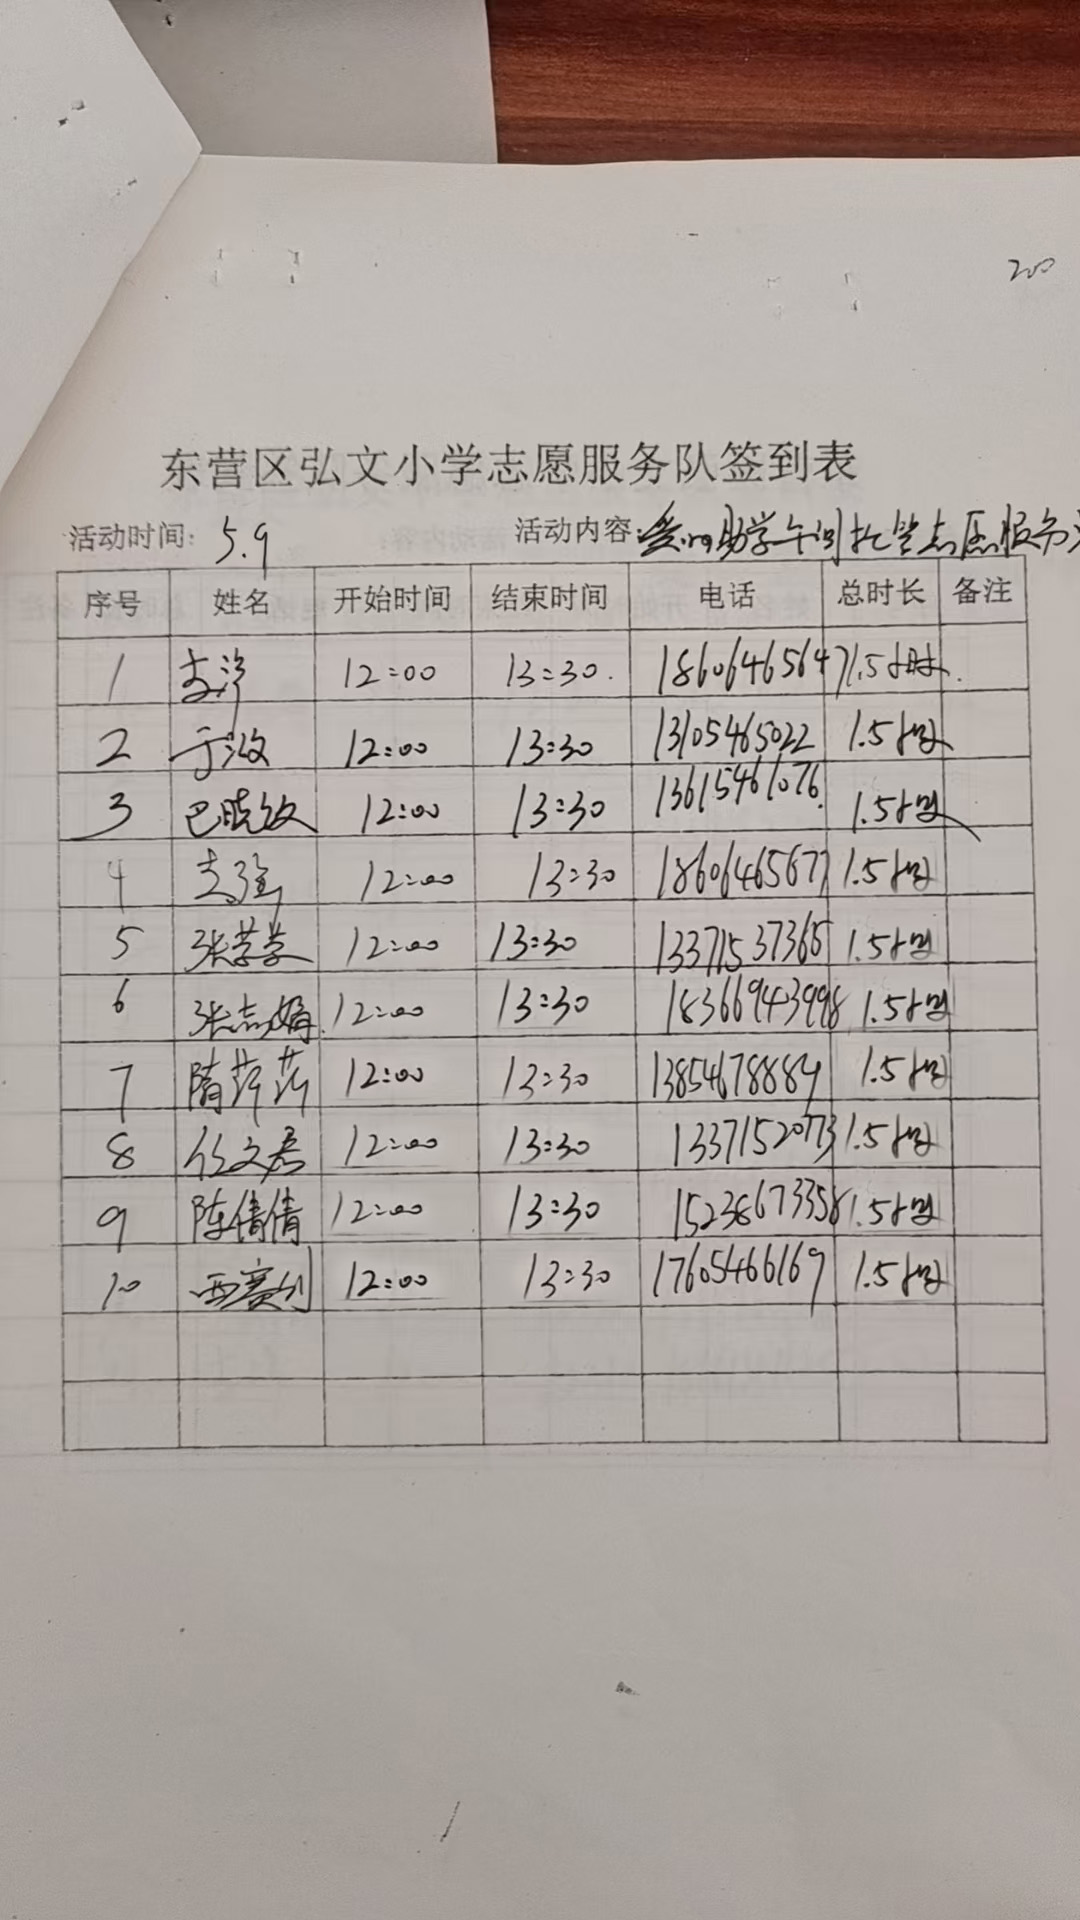 200
东营区弘文小学志愿服务队签到表
活动时间: 5.9 活动内容: 助学午间托管志愿服务
序号 姓名 开始时间 结束时间 电话 总时长 备注
1 12:00 13:30. 18606465647 1.5小时.
2 于波 12:00 13:30 13105465022 1.5小时
3 巴晓敏 12:00 13:30 13615461076. 1.5小时
4 12:00 13:30 18606465677 1.5小时
5 张苦苦 12:00 13:30 13371537365 1.5小时
6 张志娟 12:00 13:30 18366943998 1.5小时
7 隋莎莎 12:00 13:30 13854678884 1.5小时
8 任文君 12:00 13:30 13371520773 1.5小时
9 陈倩倩 12:00 13:30 15236673358 1.5小时
10 12:00 13:30 17605466169 1.5小时